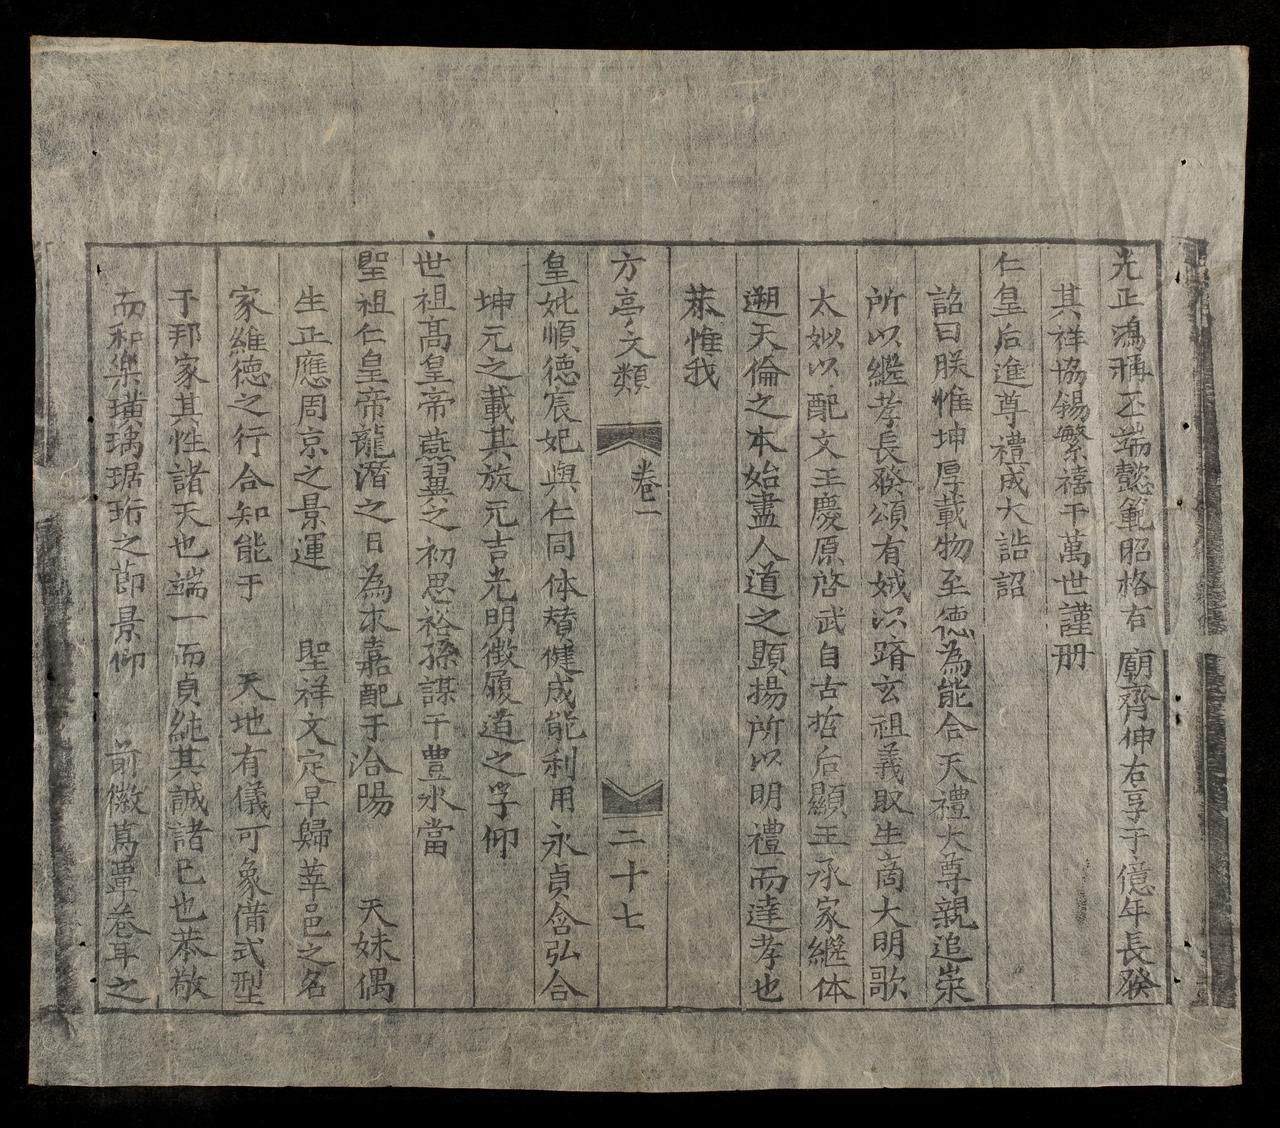 光正鴻稱丕端懿範昭格右 廟齊伸右享于億年長發
其祥協錫繁禧于萬世謹册
仁皇后進尊禮成大誥詔
詔曰朕惟坤厚載物至德為能合天禮大尊親追崇
所以繼孝長發頌有娀以躋玄祖義取生商大明歌
太姒以配文王慶原啓武自古哲后顯王承家繼体
遡天倫之本始盡人道之顯揚所以明禮而達孝也
恭惟我
方亭文類 卷一 二十七
皇妣順德宸妃與仁同体賛健成能利用永貞含弘合
坤元之載其旋元吉光明徴履道之孚仰
世祖高皇帝燕翼之初思裕孫謀于豊水當
聖祖仁皇帝龍潛之日為求嘉配于洽陽 天妹偶
生正應周京之景運 聖祥文定早歸莘邑之名
家維德之行合知能于 天地有儀可象備式型
于邦家其性諸天也端一而貞純其誠諸己也恭敬
而和樂璜瑀琚珩之節景仰 前徽葛覃卷耳之